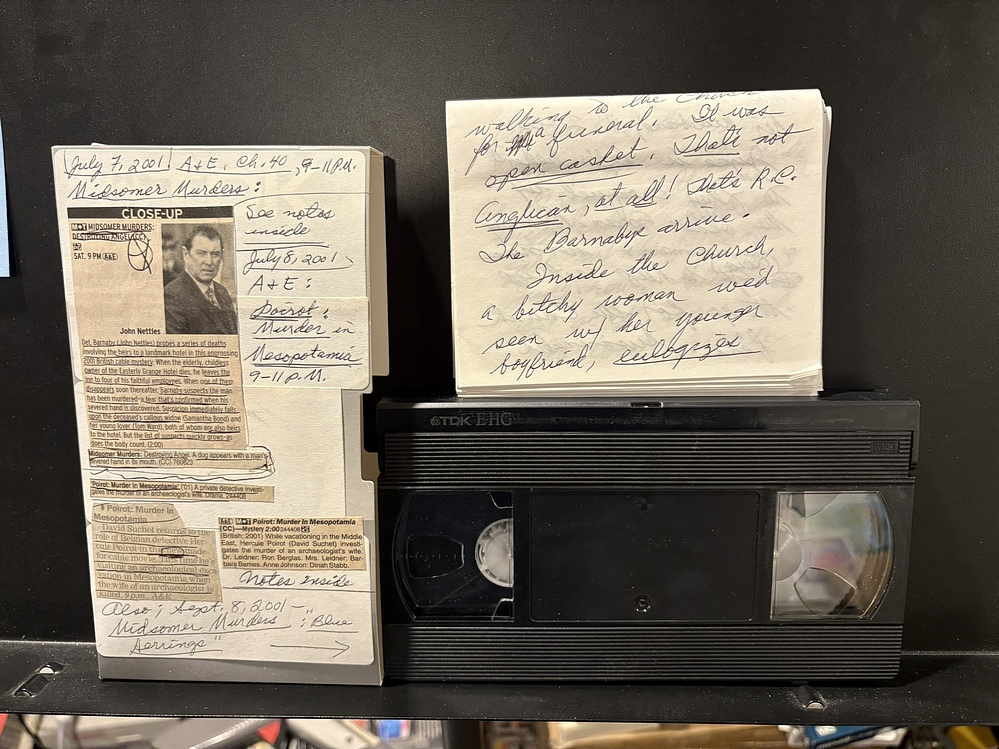 July 7, 2001 A+E, Ch. 40, 9-11 P.M.
Midsomer Murders:
CLOSE-UP
M♦T MIDSOMER MURDERS:
DESTROYING ANGEL (CC)
SAT. 9 PM (A&E)
John Nettles
Det. Barnaby (John Nettles) probes a series of deaths
involving the heirs to a landmark hotel in this engrossing
2001 British cable mystery. When the elderly, childless
owner of the Easterly Grange Hotel dies, he leaves the
inn to four of his faithful employees. When one of them
disappears soon thereafter, Barnaby suspects the man
has been murdered—a fear that's confirmed when his
severed hand is discovered. Suspicion immediately falls
upon the deceased's callous widow (Samantha Bond) and
her young lover (Tom Ward), both of whom are also heirs
to the hotel. But the list of suspects quickly grows—as
does the body count. (2:00)
Midsomer Murders: Destroying Angel. A dog appears with a man's
severed hand in its mouth. (CC) 760823
"Poirot: Murder in Mesopotamia" ('01) A private detective investi-
gates the murder of an archaeologist's wife. Drama. 244408
Poirot: Murder in
Mesopotamia
David Suchet returns to the
role of Belgian detective Her-
cule Poirot in this new made-
for-cable movie. This time he's
visiting an archaeological exca-
vation in Mesopotamia when
the wife of an archaeologist is
killed. 9 p.m., A&E
See notes
inside
July 8, 2001
A+E:
Poirot:
Murder in
Mesopotamia
9-11 P.M.
A&E M♦T Poirot: Murder in Mesopotamia
(CC)—Mystery 2:00 244408
(British; 2001) While vacationing in the Middle
East, Hercule Poirot (David Suchet) investi-
gates the murder of an archaeologist's wife.
Dr. Leidner: Ron Berglas. Mrs. Leidner: Bar-
bara Barnes. Anne Johnson: Dinah Stabb.
Notes Inside
Also; Sept. 8, 2001 –
Midsomer Murders: "Blue
Herrings"
walking to the Church
for a funeral. It was
open casket. That's not
Anglican, at all! That's R.C.
The Barnabys arrive.
Inside the Church,
a bitchy woman we'd
seen w/ her younger
boyfriend, eulogizes
TDK E-HG